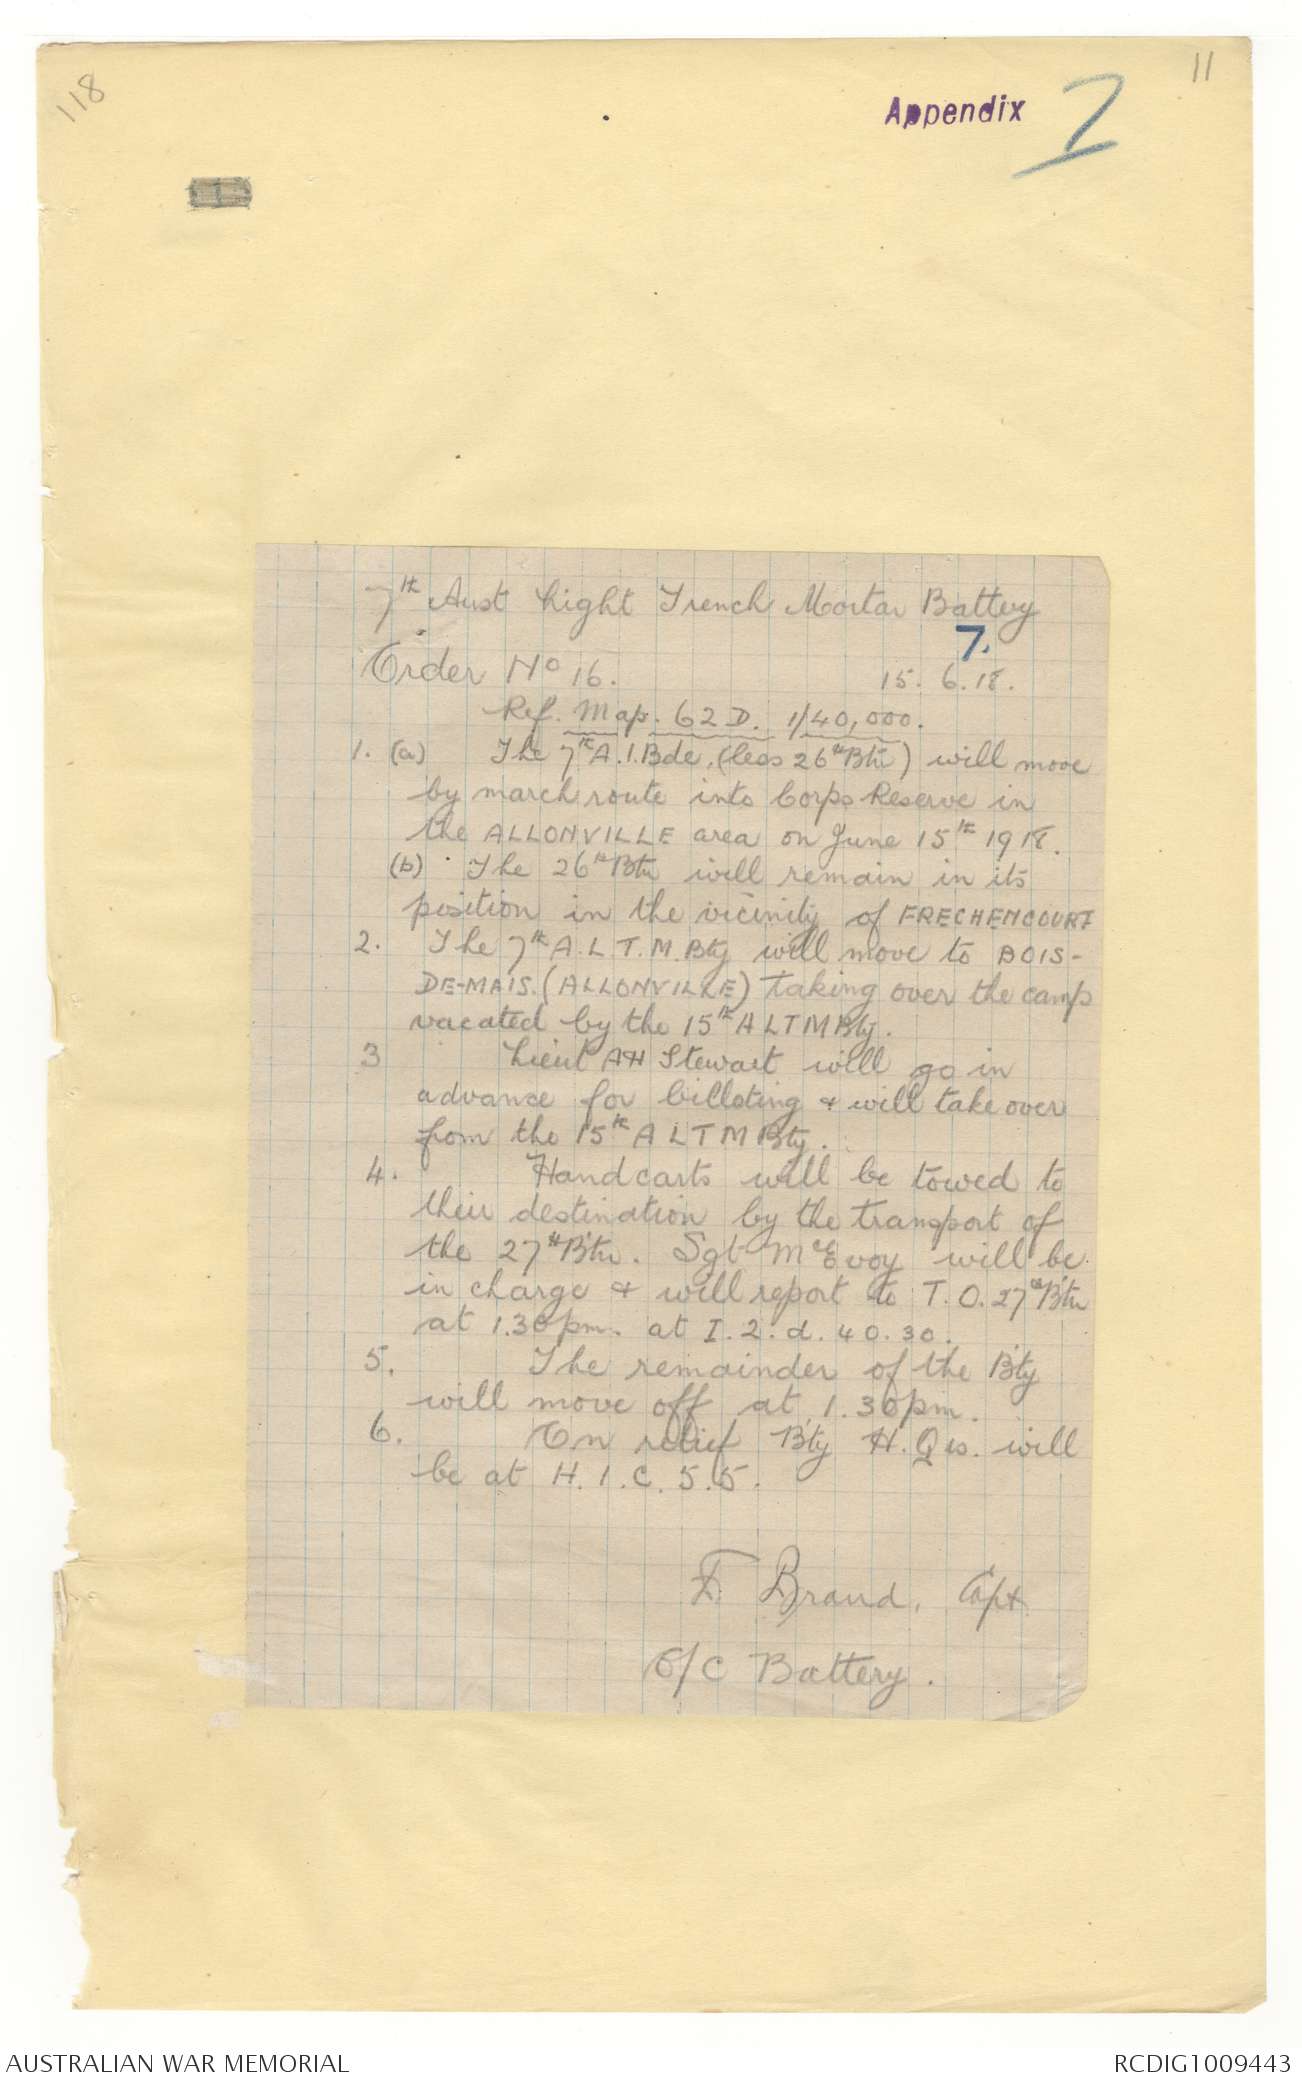 118
11
Appendix 7
7th Aust Light Trench Mortar Battery
7.
Order No 16. 15. 6. 18.
Ref. Map. 62 D. 1/40,000.
1. (a) The 7th A.I.Bde. (less 26th Btn) will move
by march route into Corps Reserve in
the ALLONVILLE area on June 15th 1918.
(b) The 26th Btn will remain in its
position in the vicinity of FRECHENCOURT
2. The 7th A.L.T.M. Bty will move to BOIS-
DE-MAIS. (ALLONVILLE) taking over the camp
vacated by the 15th A L T M Bty.
3 Lieut AH Stewart will go in
advance for billeting & will take over
from the 15th A L T M Bty.
4. Handcarts will be towed to
their destination by the transport of
the 27th Btn. Sgt McEvoy will be
in charge & will report to T.O. 27th Btn
at 1.30 pm. at I.2.d.40.30.
5. The remainder of the Bty
will move off at 1.30 pm.
6. On relief Bty H.Qrs. will
be at H.1.C.5.5.
F. Brand, Capt
O/C Battery.
AUSTRALIAN WAR MEMORIAL
RCDIG1009443